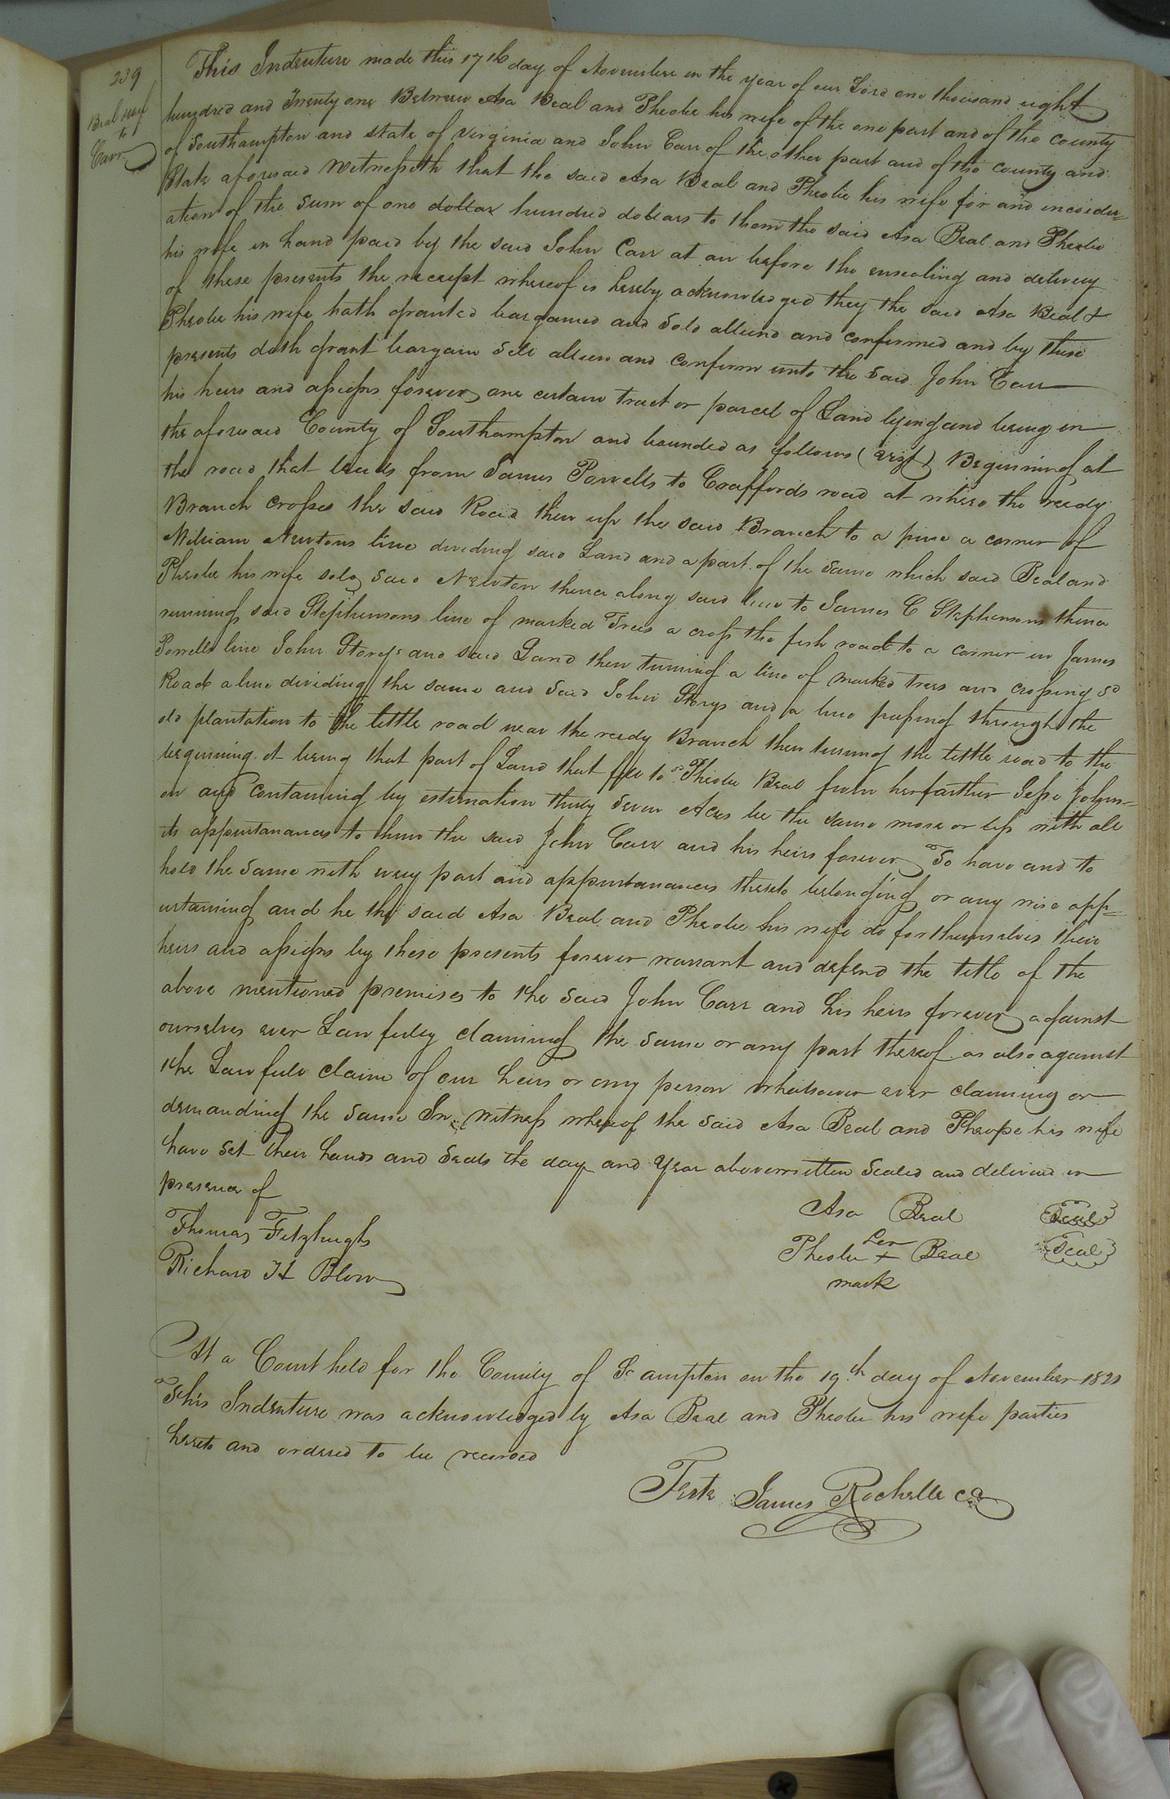 239
Beal & wf
to
Carr
This Indenture made this 17th day of November in the year of our Lord one thousand eight
hundred and Twenty one Between Asa Beal and Pheobe his wife of the one part and of the county
of Southampton and state of Virginia and John Carr of the other part and of the county and
State aforesaid Witnesseth that the said Asa Beal and Pheobe his wife for and in consider=
ation of the sum of one dollar hundred dollars to them the said Asa Beal and Pheobe
his wife in hand paid by the said John Carr at or before the ensealing and delivery
of these presents the receipt whereof is hereby acknowledged they the said Asa Beal &
Pheobe his wife hath granted bargained and sold aliend and confirmed and by these
presents doth grant bargain sell alien and confirm unto the said John Carr
his heirs and assigns forever one certain tract or parcel of Land lying and being in
the aforesaid County of Southampton and bounded as follows (vizt) Beginning at
the road that leads from James Powells to Craffords road at where the reedy
Branch crosses the said Road then up the said Branch to a pine a corner of
William Newtons line dividing said Land and a part of the same which said Beal and
Pheobe his wife sold said Newton thence along said line to James C Stephensons thence
running said Stephensons line of marked Trees a cross the fish road to a corner in James
Powells line John Storys and said Land then turning a line of marked trees and crossing sd
Road a line dividing the same and said John Storys and a line passing through the
old plantation to the little road near the reedy Branch then turning the little road to the
beginning it being that part of Land that fell to Pheobe Beal from her farther Jesse Johns=
on and containing by estimation thirty seven Acres be the same more or less with all
its appurtanances to him the said John Carr and his heirs forever To have and to
hold the same with every part and appurtanances thereto belonging or any wise app=
urtaining and he the said Asa Beal and Pheobe his wife do for themselves their
heirs and assigns by these presents forever warrant and defend the title of the
above mentioned premises to the said John Carr and his heirs forever against
ourselves ever Lawfully claiming the same or any part thereof as also against
the Lawfull claim of our heirs or any person whatsoever ever claiming or
demanding the same In witness whereof the said Asa Beal and Pheope his wife
have set their hands and seals the day and Year above written Sealed and delivered in
presence of
Thomas Fitzhugh
Richard H Blow
Asa Beal Seal
Pheobe her + Beal Seal
mark
At a Court held for the County of So ampton on the 19th day of November 1821
This Indenture was acknowledged by Asa Beal and Pheobe his wife parties
hereto and ordered to be recorded
Teste James Rochelle CC